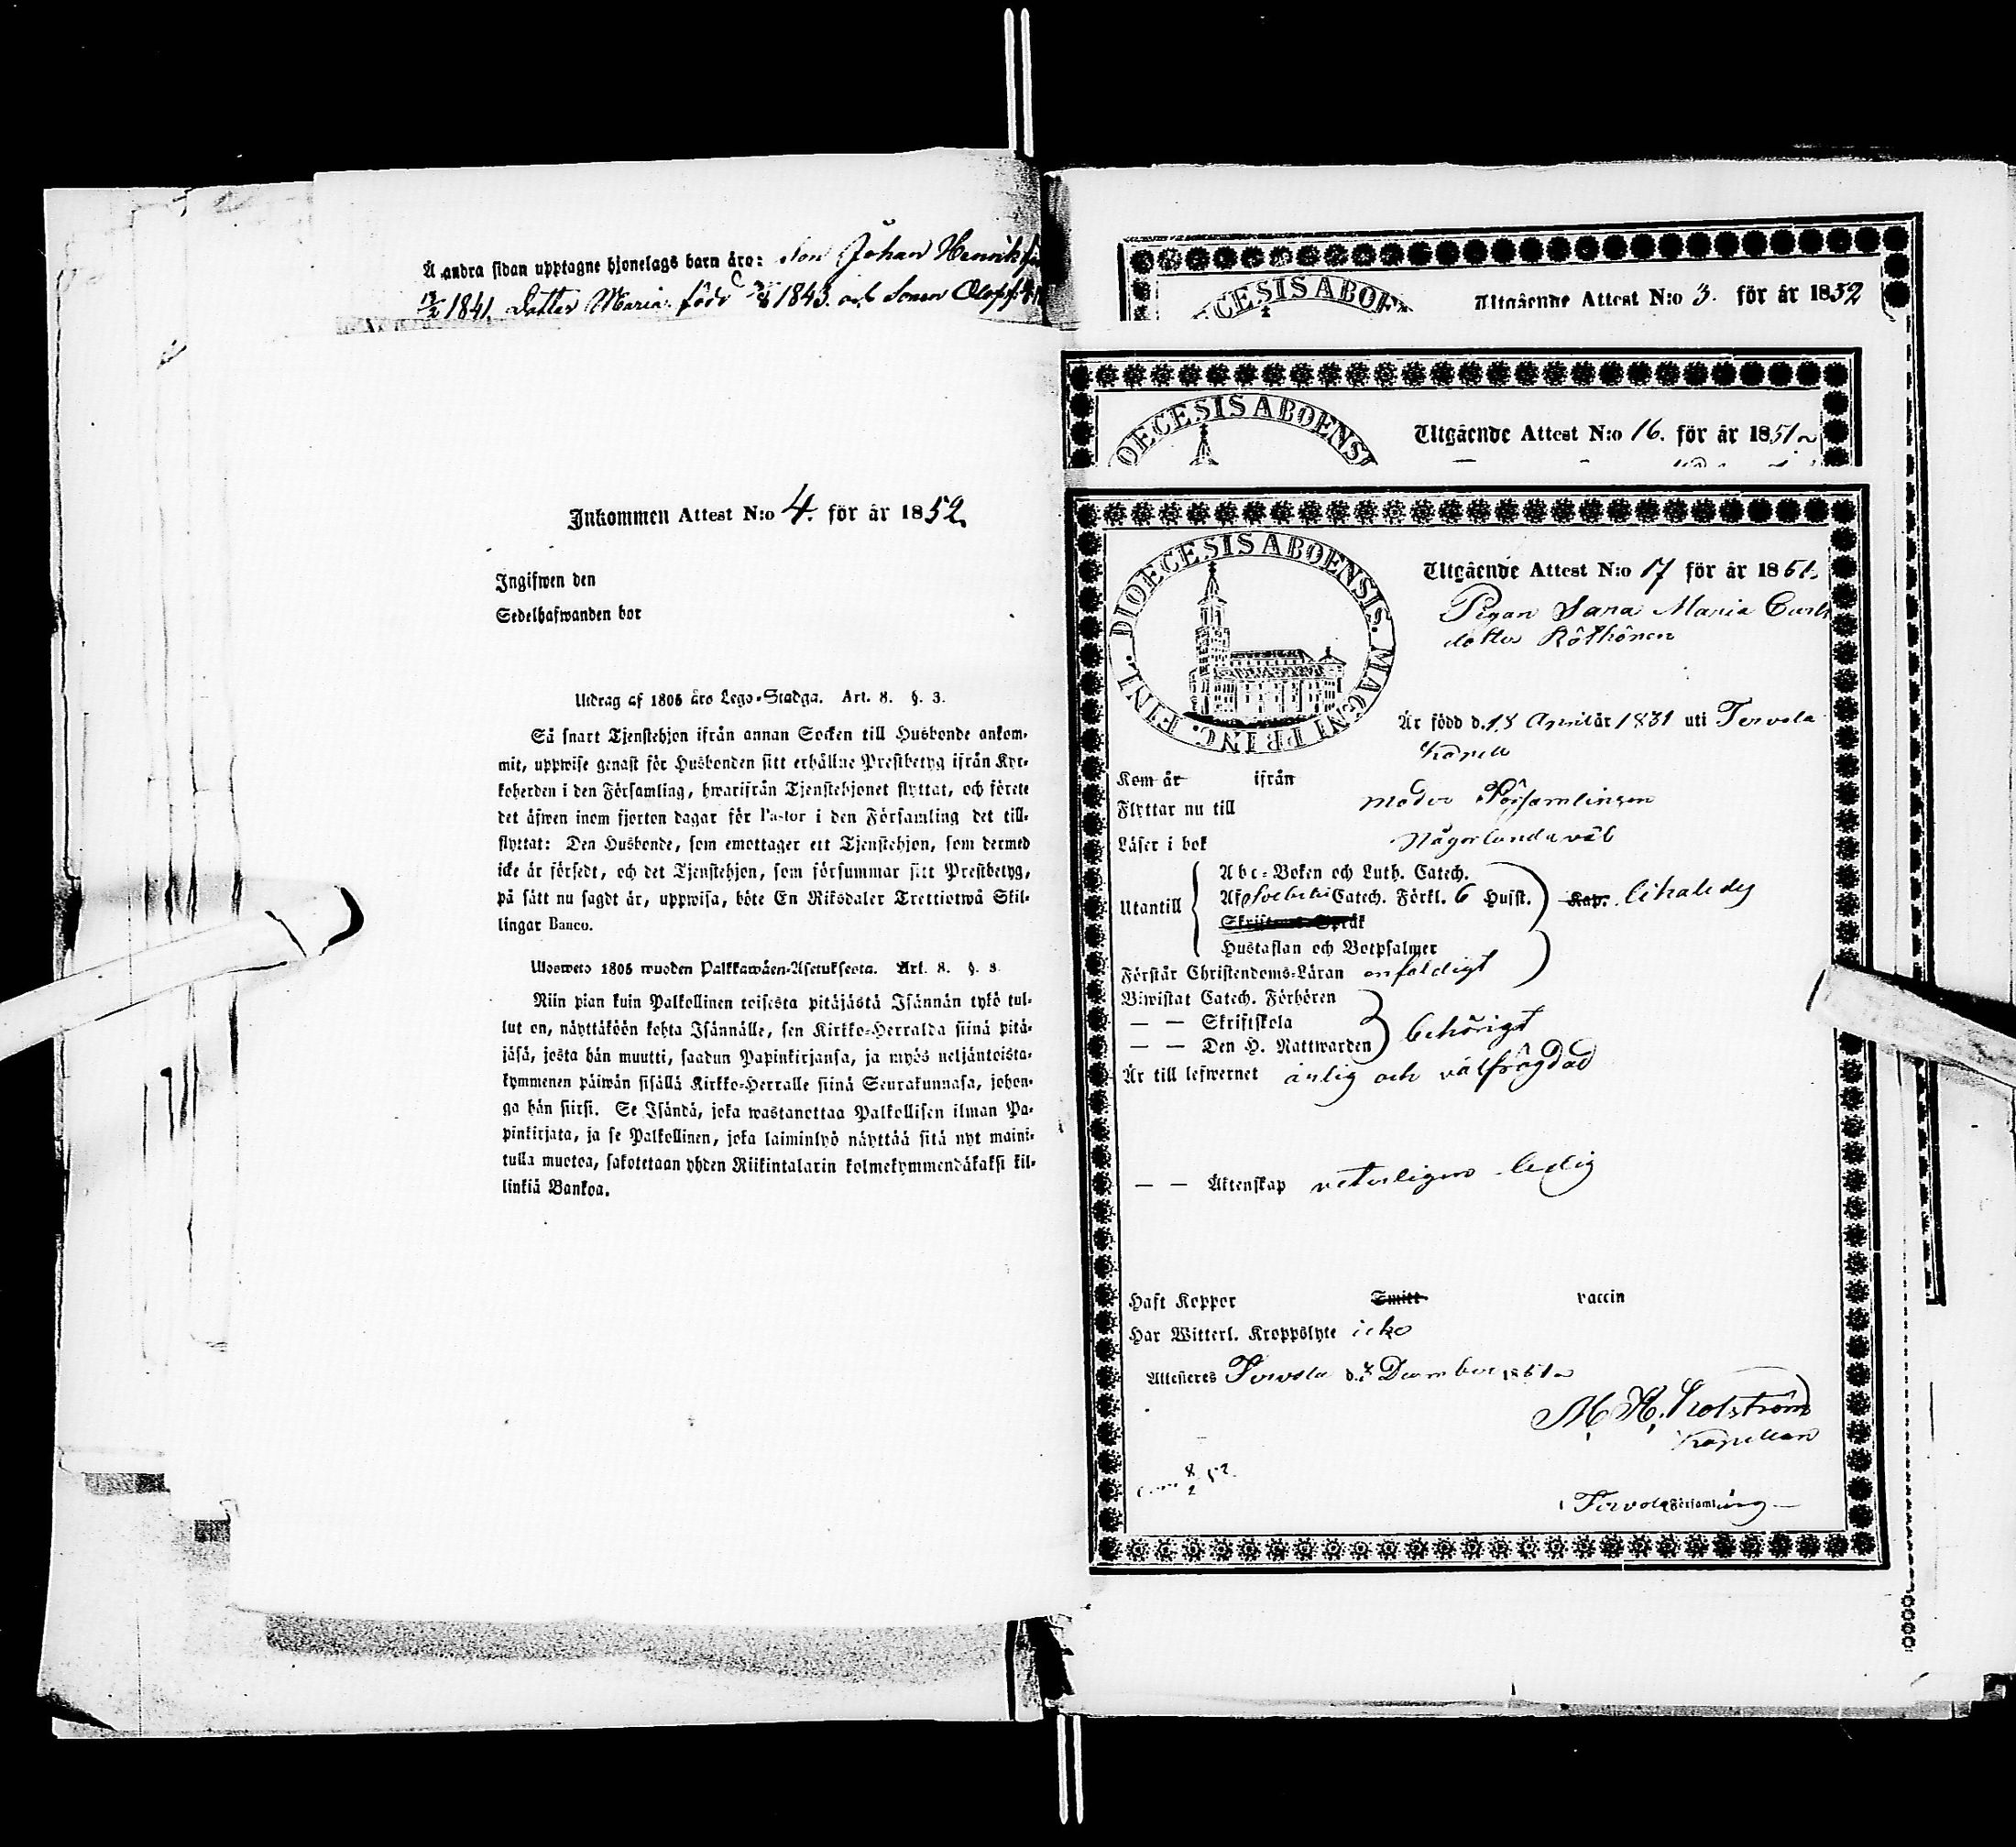 Å andra sidan upptagne hjonelags barn äro: Son Johan Henrik
1841. Dotter Maria född 1843. och Sonen Olof
Inkommen Attest N:o 4. för år 1852.
Ingifwen den
Sedelhafwanden bor
Utdrag af 1805 års Lego-Stadga. Art. 8. §. 3.
Så snart Tjenstehjon ifrån annan Socken till Husbonde ankom-
mit, uppwise genast för Husbonden sitt erhållne Prestbetyg ifrån Kyr-
koherden i den Församling, hwarifrån Tjenstehjonet flyttat, och förete
det äfwen inom fjorton dagar för Pastor i den Församling det till-
flyttat: Den Husbonde, som emottager ett Tjenstehjon, som dermed
icke är försedt, och det Tjenstehjon, som försummar sitt Prestbetyg,
på sätt nu sagdt är, uppwisa, böte En Riksdaler Trettiotwå Skil-
lingar Banco.
Ulosweto 1805 wuoden Palkkawäen-Asetuksesta. Art. 8. §. 3.
Niin pian kuin Palkollinen toisesta pitäjästä Isännän tykö tul-
lut on, näyttäköön kohta Isännälle, sen Kirkko-Herralda siinä pitä-
jäsä, josta hän muutti, saadun Papinkirjansa, ja myös neljäntoista-
kymmenen päiwän sisällä Kirkko-Herralle siinä Seurakunnasa, johon-
ga hän siirsi. Se Isändä, joka wastanottaa Palkollisen ilman Pa-
pinkirjata, ja se Palkollinen, joka laiminlyö näyttää sitä nyt maini-
tulla muotoa, sakotetaan yhden Riikintalarin kolmekymmendäkaksi kil-
linkiä Bankoa.
CESIS ABOE
Utgående Attest N:o 3. för år 1852
OECESIS ABOENS
Utgående Attest N:o 16. för år 1851
DIOECESIS ABOENSIS. MAGNI PRINC. FINL.
Utgående Attest N:o 17 för år 1851.
Pigan Sara Maria Carls
dotter
Är född d. 18 April år 1831 uti Tervola
Kapell
Kom år ifrån
Flyttar nu till moder Församlingen
Läser i bok någorlunda väl
Utantill
Abc-Boken och Luth. Catech.
Af Svebelii Catech. Förkl. 6 Hufst. Kap.
Skriftenes Språk
Hustaflan och Botpsalmer
Förstår Christendoms-Läran enfaldigt
Biwistat Catech. Förhören
— — Skriftskola behörigt
— — Den H. Nattwarden
Är till lefwernet ärlig och välfrägdad
— — Äktenskap veterligen ledig
Haft Koppor Smitt vaccin
Har Witterl. Kroppslyte icke
Attesteres Tervola d. December 1851
M. H.
Kapellan
8/2 52.
i Tervola Församling